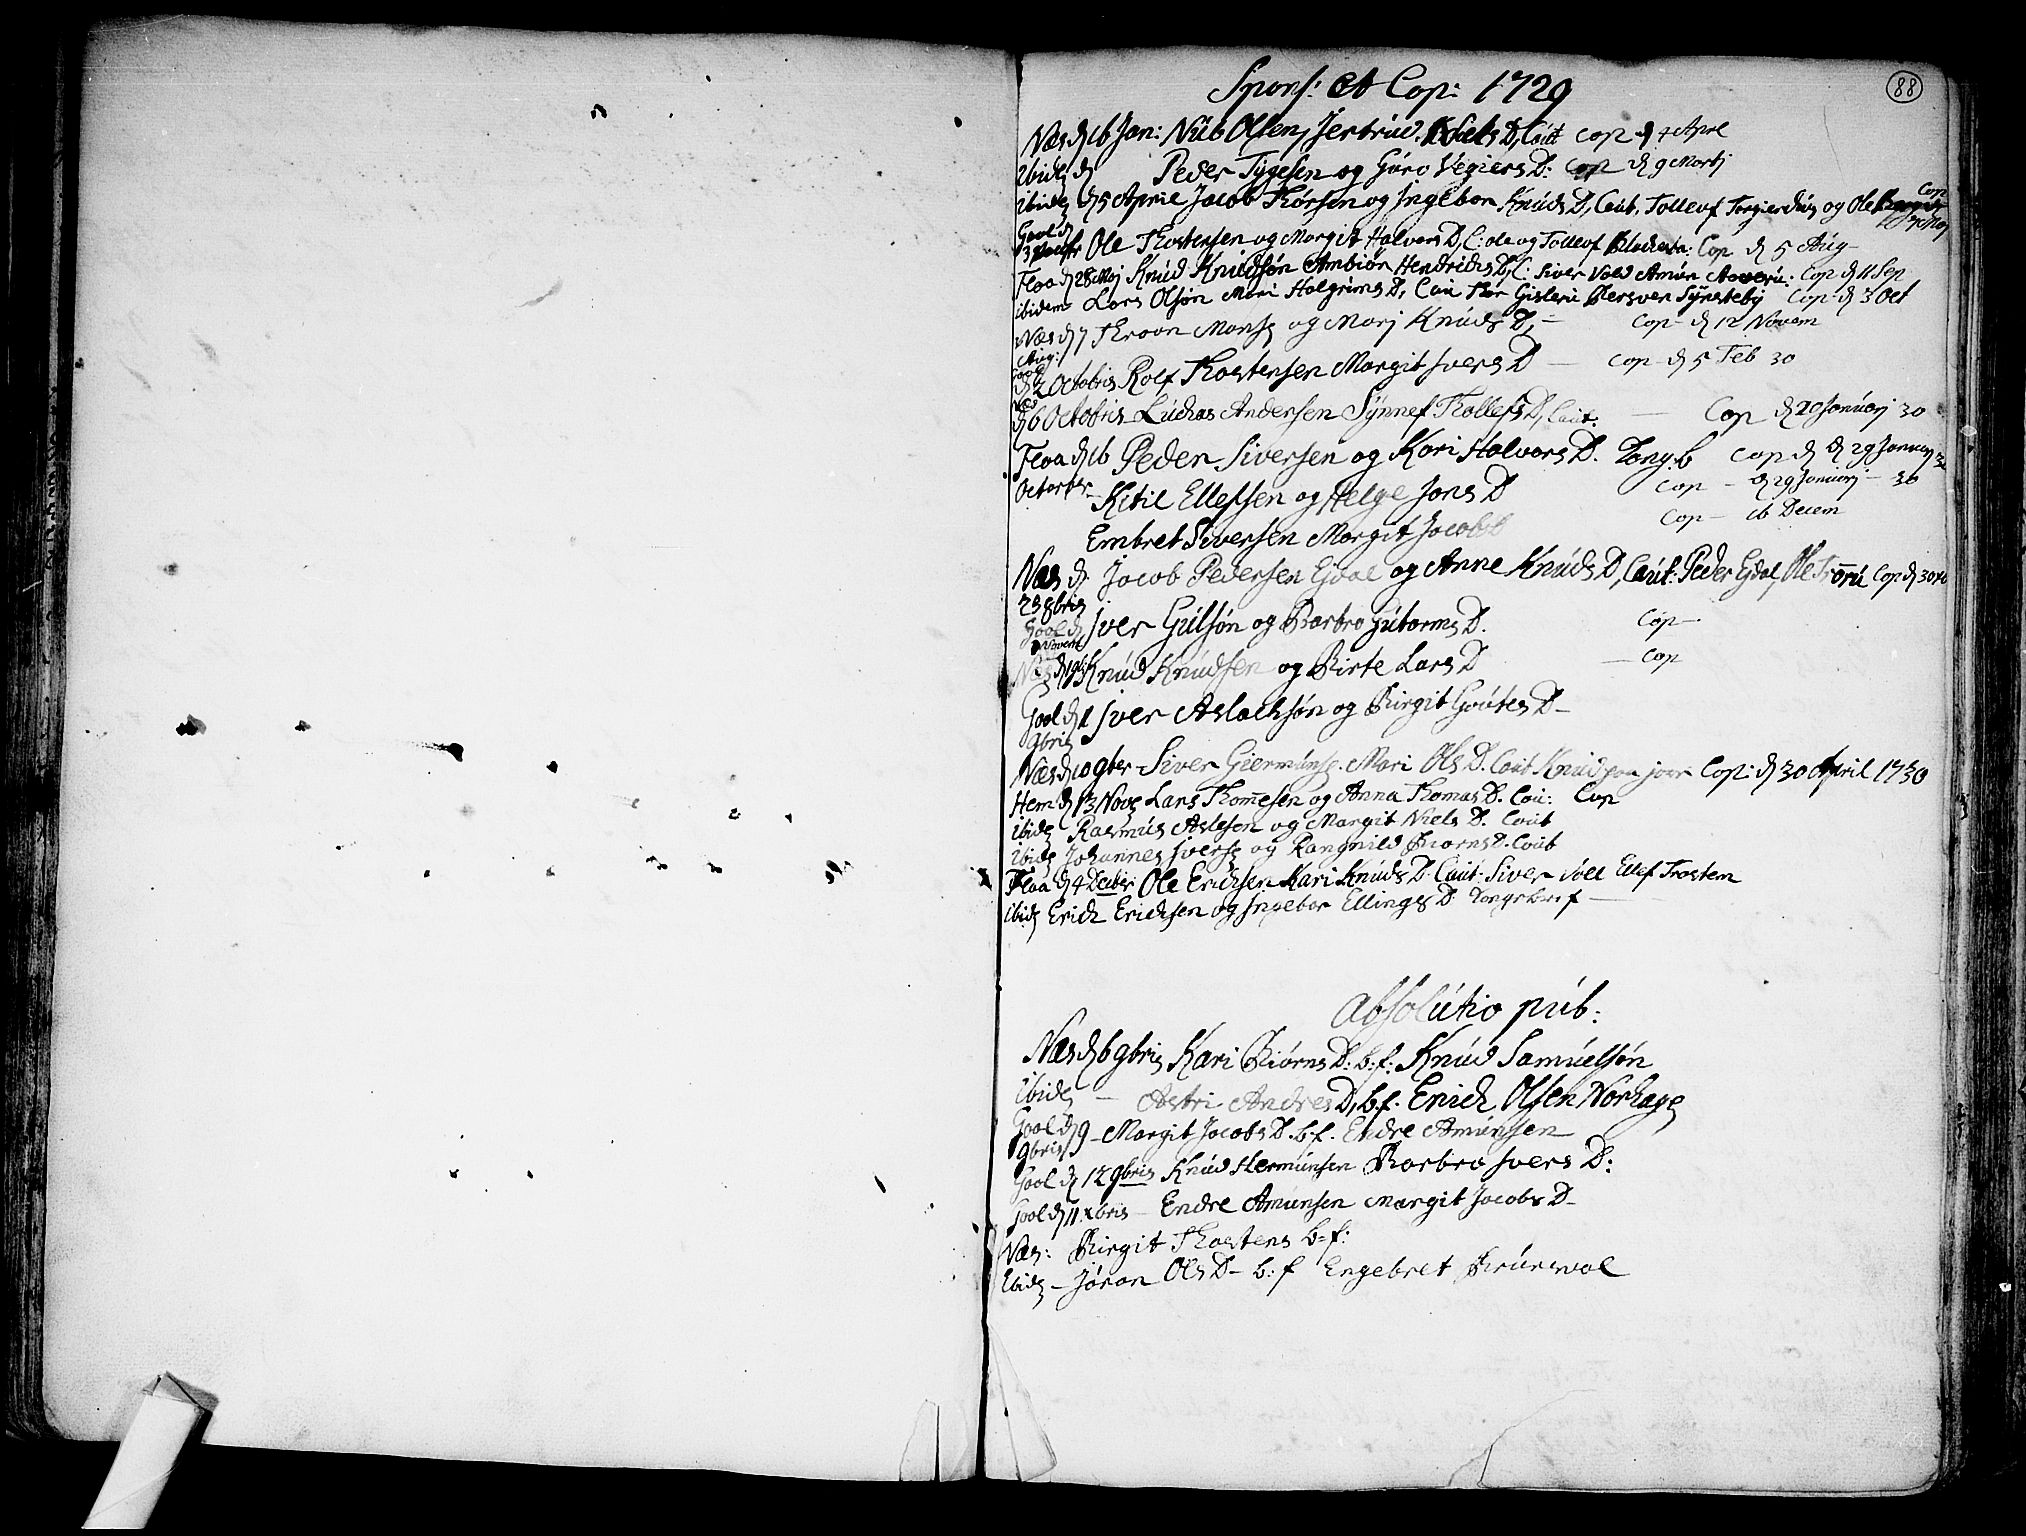 88
Spons: et Cop: 1729
Næs d 16 Jan: Niels Olsen, Jertrud Niels D, Caut cop d 4 Aprl
ibidz d Peder Tygesen og Guro Vegiers D: Cop d 9 Martj
ibidz d 5 Aprile Jacob Thorsen og Ingebor Knuds D, Caut, Tollevf Torgierdsng og Ole Cop
Gool d
Ole Thostensen og Margit Halvors D, C: Ole og Tollevf Cop d 5 Aug
Floa d 28 Maj Knud Knudsøn Ambiør Hendrichs D, C: Siver Vold Amun Cop d 11 Sep
ibidem Lars Olsøn Mari Halgrims D, Cau Thor Gislerú Bersven Synsteby Cop d 3 Oct
Næs d 7 Throon Monsz og Marj Knuds D, - Cop d 12 Novem
Aug:
Gool
d 2 Octobris Rolf Thostensen Margit Ivers D - Cop d 5 Feb 30
Næs
d 6 Octobris Luchas Andersen Synnef Thollefs D, Caut: - Cop d 20 Januarj 30
Floa d 16 Peden Siversen og Kari Halvors D. Tong.b Cop d d 29 Januarj 30
Octobris - Kitil Ellefsen og Helge Jons D Cop - d 29 Januarj - 30
Embret Siversen Margit Jacobs D Cop - 16 Decem
Næs d Jacob Pedersen Ejdal og Anne Knuds D, Caut: Peder Ejdal, Ole Cop d 30
23 8bris
Gool d Iver Gulsøn og Barbro Gutorms D. Cop -
Novem
Næs d 19 Knud Knudsen og Birte Lars D - Cop
Gool d 1 Iver Aslachsøn og Birgit Goutes D -
9bris
Næs d 10 9ber - Siver Giermunsz. Mari Ols D. Caut Knud paa Cop: d 30 April 1730
Hem d 13 Novz Lars Thomesen og Anna Thomas D. Cau: Cop
ibidz Rasmus Aslesen og Margit Niels D. Caut
ibidz Johannes Iversz og Rangnild Biorns D. Caut
Floa d 4 Decibr Ole Erichsen Kari Knuds D Caut: Siver Ellef Trostem
ibidz Erich Erichsen og Ingebor Ellings D. Tongebref -
Absolutio pub:
Næs d 6 9bris Kari Biørns D: b: f: Knud Samuelsøn
ibidz - Astri Andres D, b.f: Erich Olsen Norhage
Gool d 9 - Margit Jacobs D. b.f. Endre Amunsen
9bris
Gool d 12 9bris Knud Hermunsen Barbro Ivers D:
Gool d 11 xbris - Endre Amunsen Margit Jacobs D -
Næs: Birgit Thostens b=f:
Ibidz - Jøran Ols D - b: f Engebret Brunsvol